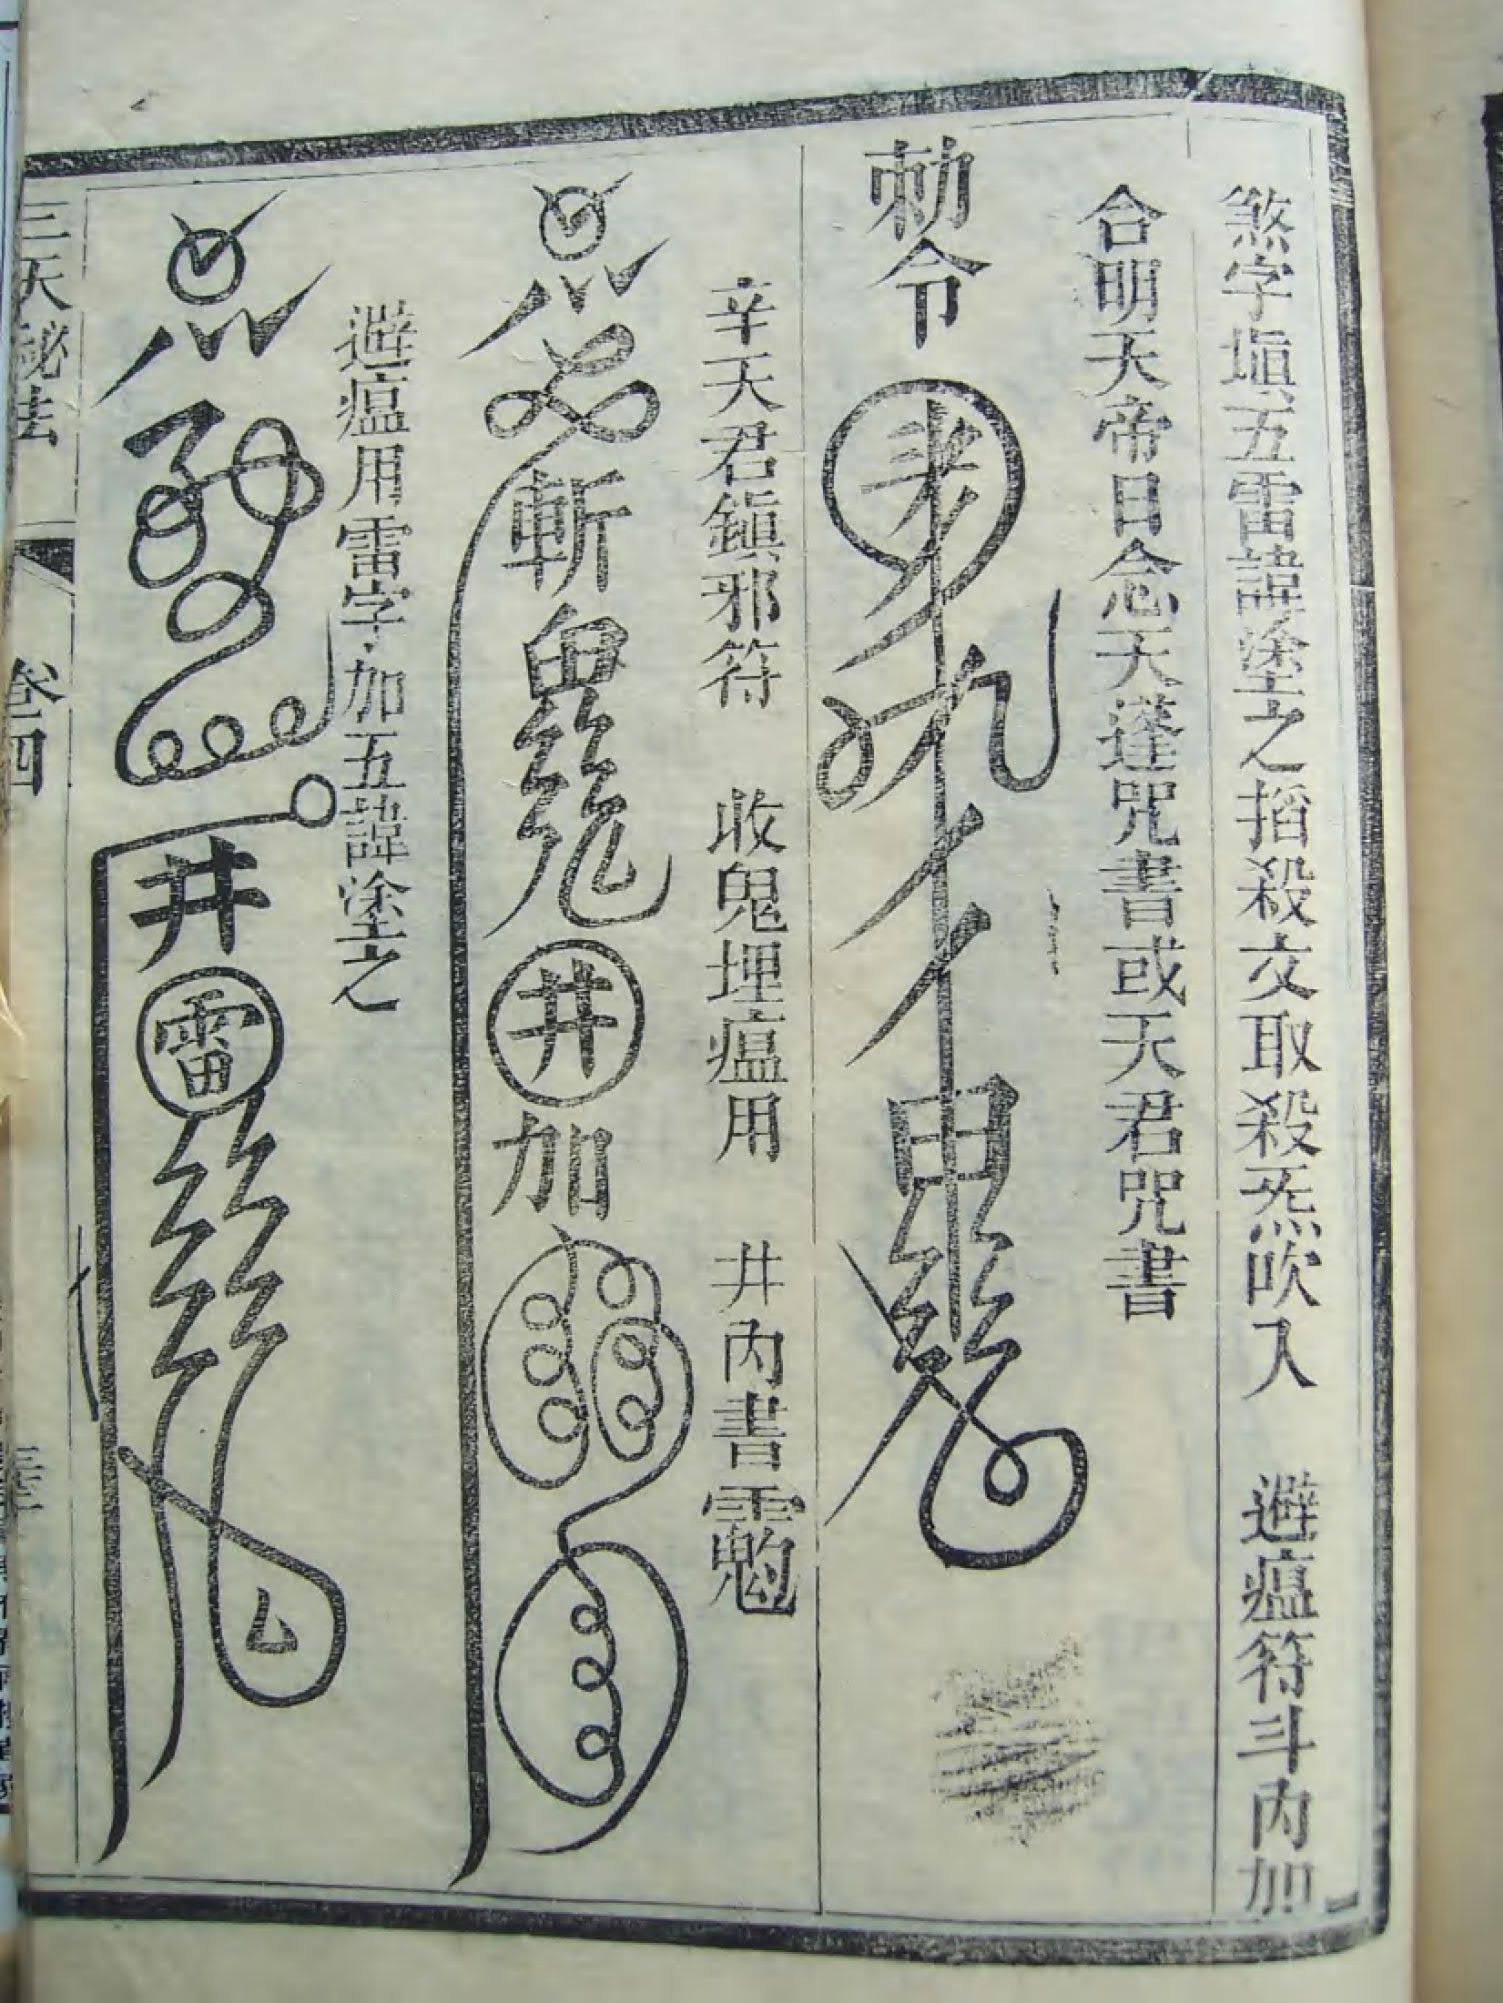 煞字塡五雷諱塗之搯殺文取殺炁吹入 避瘟符斗內加
合明天帝日念天蓬咒書或天君咒書
勅令
辛天君鎭邪符 收鬼埋瘟用 井內書
斬鬼
井
加
避瘟用雷字加五諱塗之
井
雷
三天秘法 卷四